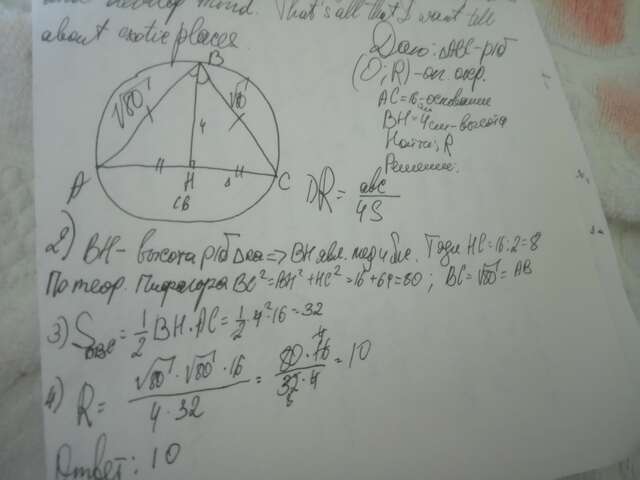 and develop mind. That's all that I want tell
about exotic places.
Дано: △ABC-р/б
(O;R)-оп. окр.
AC=16см-основание
BH=4см-высота
Найти: R
Решение:
B
√80
√80
4
A
H
8
C
1) R = abc / 4S
2) BH- высота р/б △ка => BH явл. мед и бис. Тогда HC=16:2=8
По теор. Пифагора BC²=BH²+HC²=16+64=80; BC=√80=AB
3) S = 1/2 BH·AC = 1/2·4·16=32
4) R = √80·√80·16 / 4·32 = 80·16 / 32·4 = 10
Ответ: 10